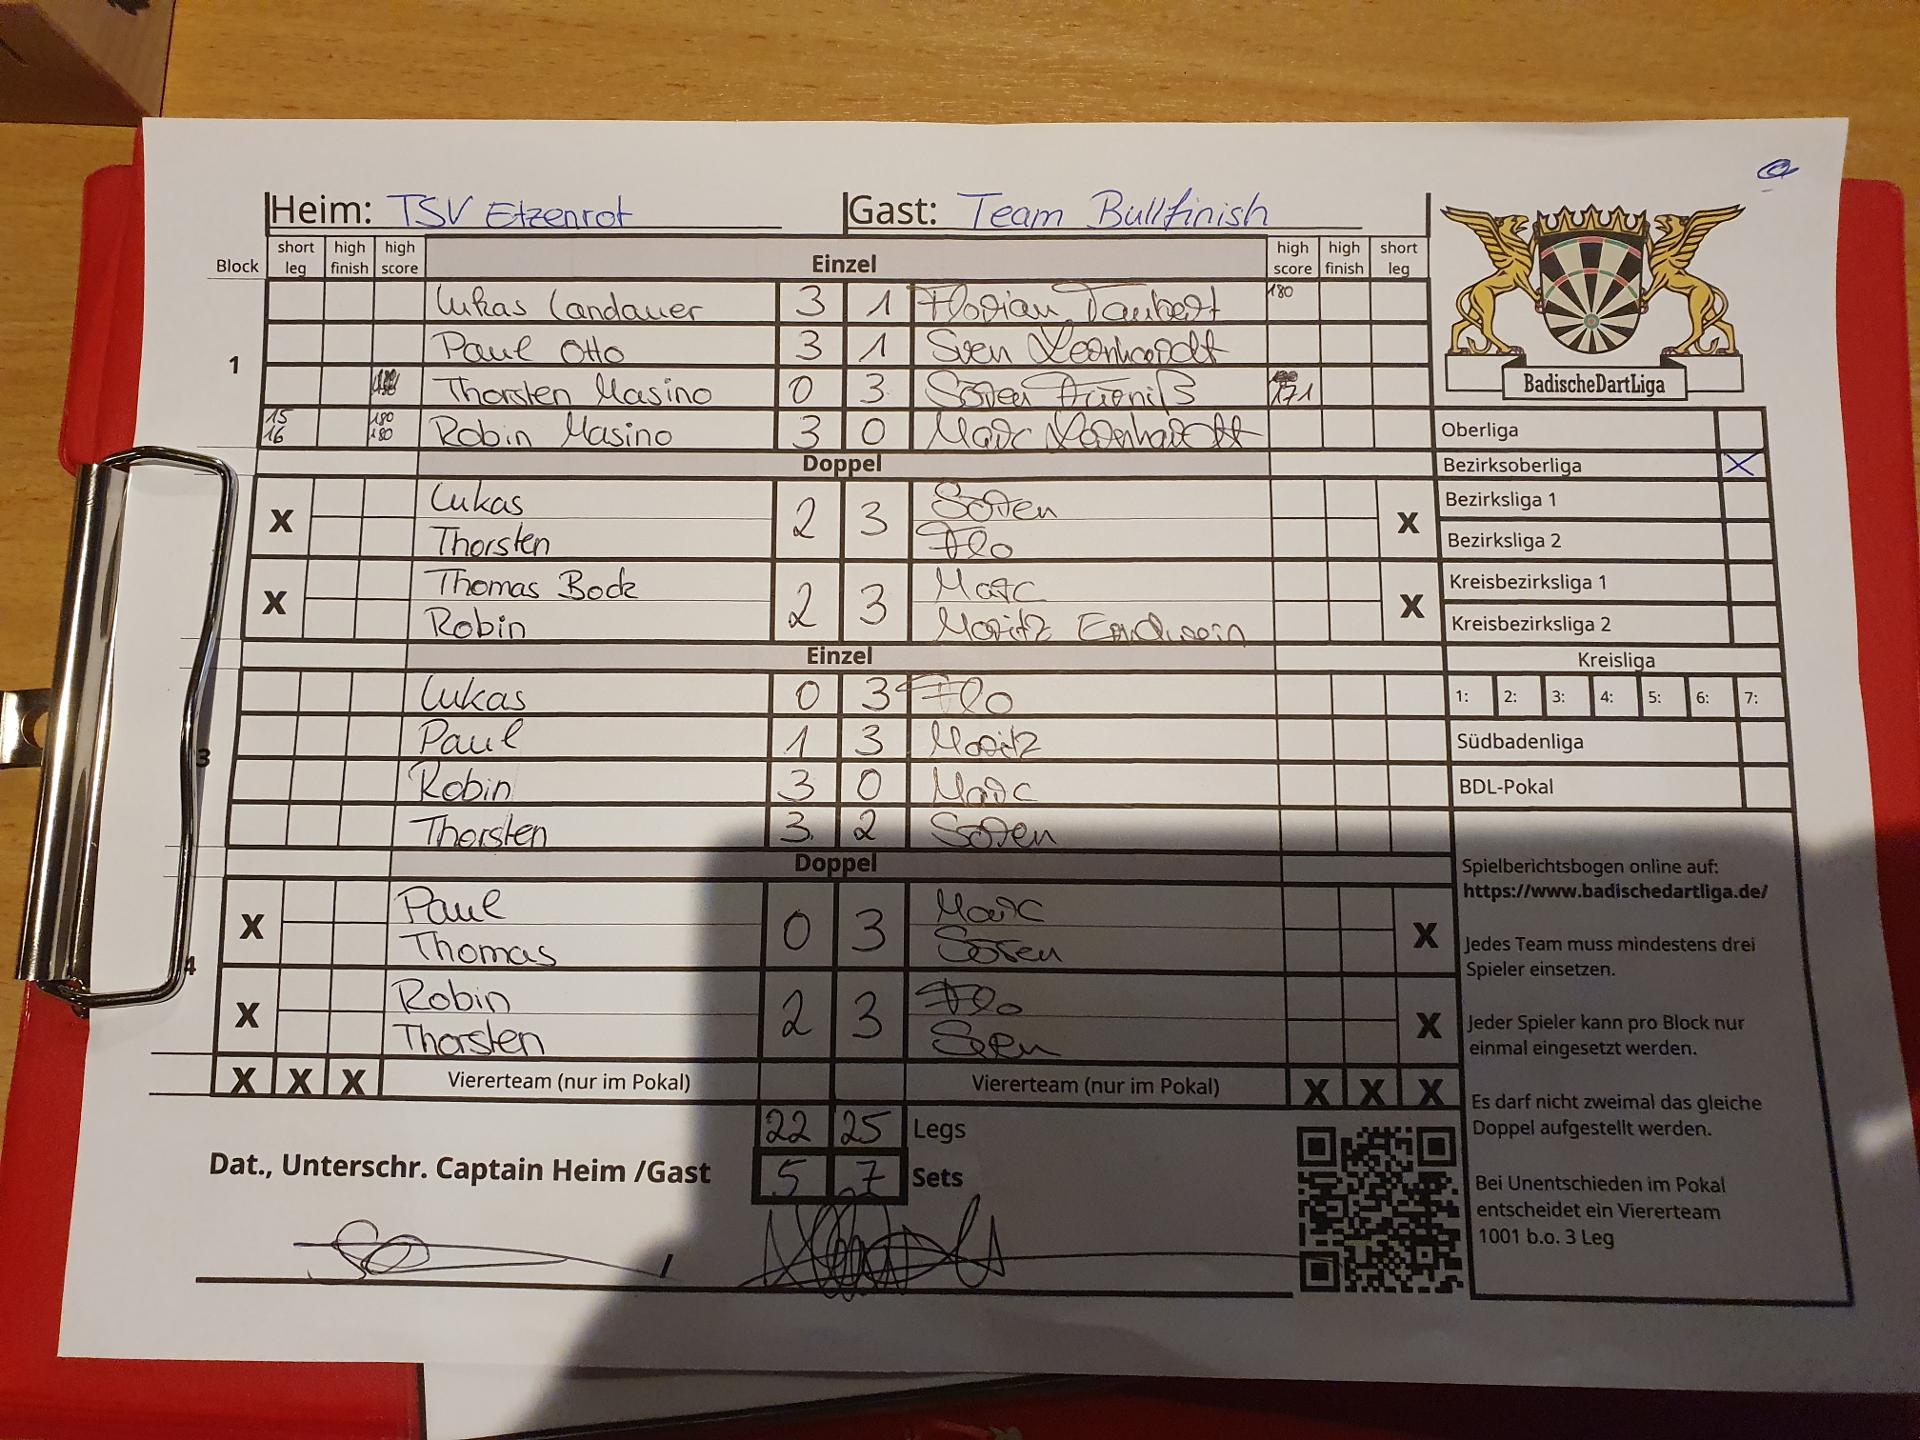 Heim: TSV Etzenrot Gast: Team Bullfinish
Block short leg high finish high score Einzel high score high finish short leg
Lukas Landauer 3 1 Florian Taubert 180
Paul Otto 3 1 Sven Leonhardt
1
Thorsten Masino 0 3 Sören 171
15 16 180 180 Robin Masino 3 0 Marc Leonhardt
Doppel
X Lukas 2 3 Sören X
Thorsten Flo
X Thomas Bock 2 3 Marc X
Robin Moritz
Einzel
Lukas 0 3 Flo
Paul 1 3 Moritz
3
Robin 3 0 Marc
Thorsten 3 2 Sören
Doppel
X Paul 0 3 Marc X
Thomas Sören
4
X Robin 2 3 Flo X
Thorsten Sven
X X X Viererteam (nur im Pokal) Viererteam (nur im Pokal) X X X
22 25 Legs
Dat., Unterschr. Captain Heim /Gast 5 7 Sets
/
BadischeDartLiga
Oberliga
Bezirksoberliga X
Bezirksliga 1
Bezirksliga 2
Kreisbezirksliga 1
Kreisbezirksliga 2
Kreisliga
1: 2: 3: 4: 5: 6: 7:
Südbadenliga
BDL-Pokal
Spielberichtsbogen online auf:
https://www.badischedartliga.de/
Jedes Team muss mindestens drei
Spieler einsetzen.
Jeder Spieler kann pro Block nur
einmal eingesetzt werden.
Es darf nicht zweimal das gleiche
Doppel aufgestellt werden.
Bei Unentschieden im Pokal
entscheidet ein Viererteam
1001 b.o. 3 Leg